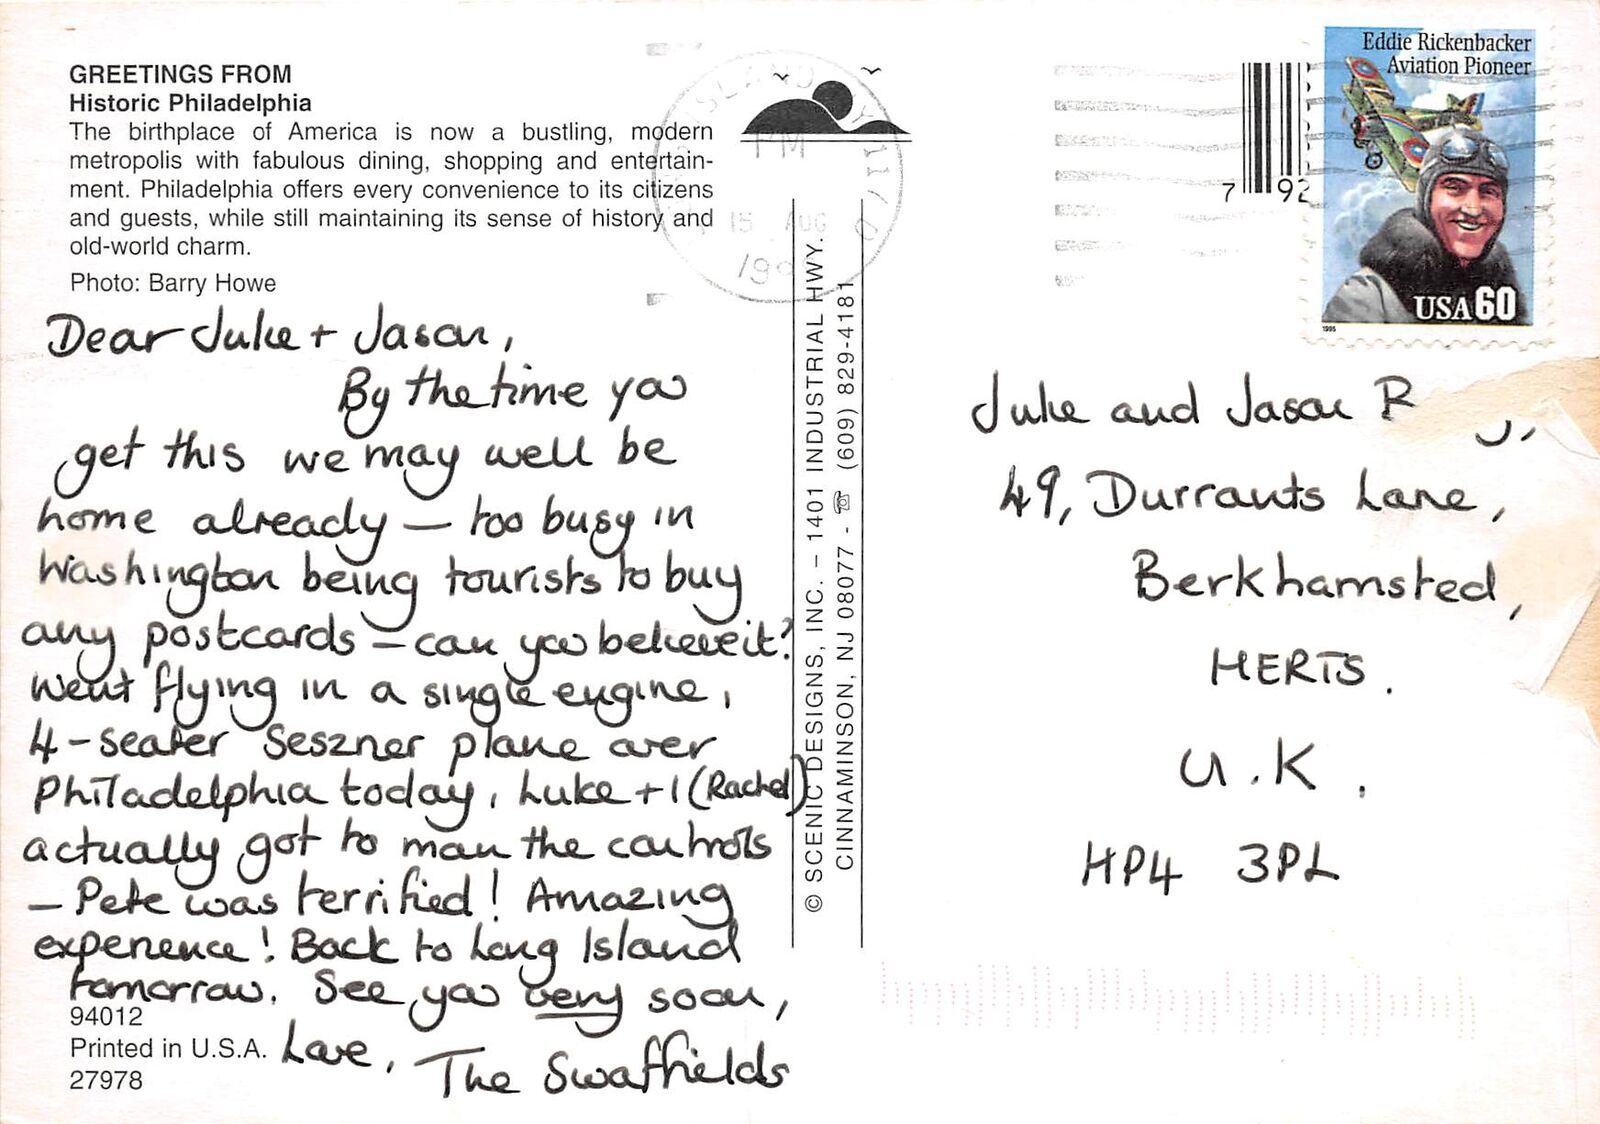 GREETINGS FROM
Historic Philadelphia
The birthplace of America is now a bustling, modern
metropolis with fabulous dining, shopping and entertain-
ment. Philadelphia offers every convenience to its citizens
and guests, while still maintaining its sense of history and
old-world charm.
Photo: Barry Howe
Dear Julie + Jason,
By the time you
get this we may well be
home already – too busy in
Washington being tourists to buy
any postcards – can you believe it?
Went flying in a single engine,
4-seater Seszner plane over
Philadelphia today, Luke + I (Rachel)
actually got to man the controls
– Pete was terrified! Amazing
experience! Back to Long Island
tomorrow. See you very soon,
Love, The Swaffields
94012
Printed in U.S.A.
27978
© SCENIC DESIGNS, INC. – 1401 INDUSTRIAL HWY.
CINNAMINSON, NJ 08077 - ☏ (609) 829-4181
ISLAND NY 117
PM
15 AUG
199
7 92
Eddie Rickenbacker
Aviation Pioneer
USA 60
1995
Julie and Jason R
49, Durrants Lane,
Berkhamsted,
HERTS.
U.K.
HP4 3PL